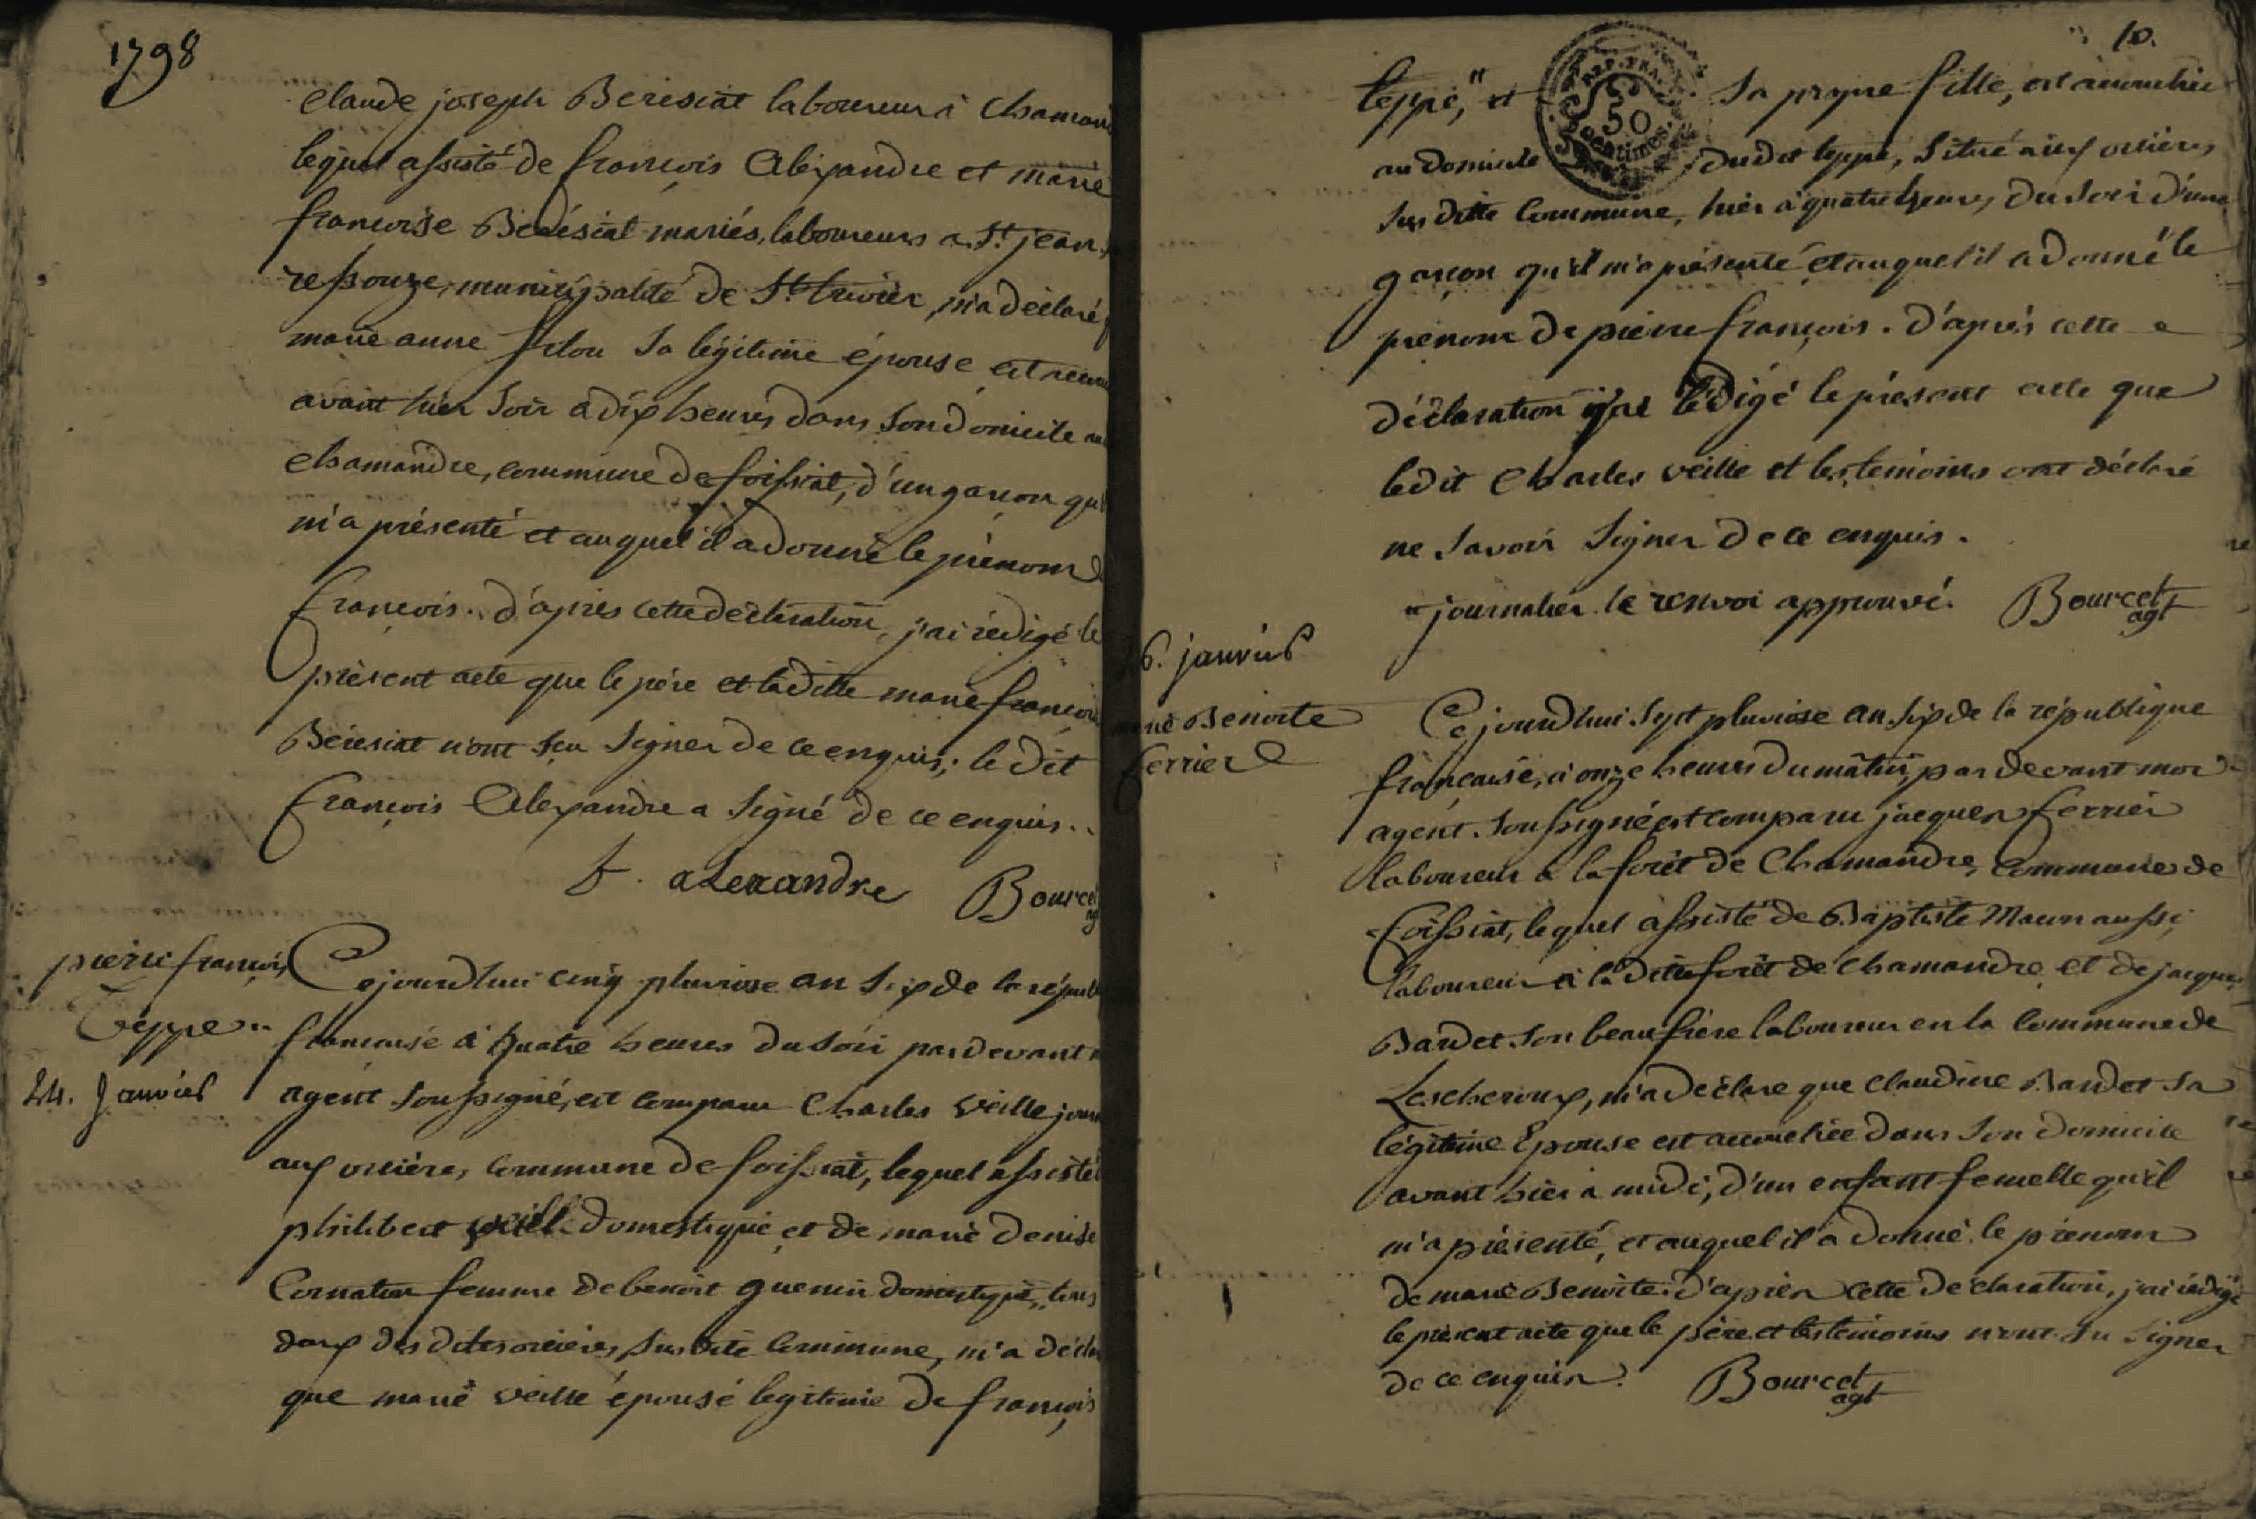 1798
claude joseph Beresiat laboureur à chaman
lequel assisté de françois Alexandre et marie
françoise Beresiat mariés, laboureurs a St. jean
ressouze, municipalité de St. trivier, m'a déclaré
marie anne filou sa légitime épouse est accou
avant hier soir a dix heures dans son domicile au
chamandre, commune de foissiat, d'un garçon qu'il
m'a présenté et auquel il a donné le prénom de
François. d'après cette déclaration, j'ai rédigé le
présent acte que le père et ladite marie françoise
Beresiat n'ont sçu signer de ce enquis, le dit
François Alexandre a signé de ce enquis.
f. alexandre Bourcet
ag
pierre françois
Teppe
24. Janvier
Cejourdhui cinq pluviose an six de la républ
française à quatre heures du soir pardevant
agent soussigné, est comparu Charles veille jour
aux orcières, commune de foissiat, lequel assisté
philibert veille domestique et de marie denise
Cornaton femme de benoit guenin domestique, tous
deux des dites orcières, susdite commune, m'a décla
que marie veille épouse legitime de françois
10.
teppe," et sa propre fille, est accouchée
REP. FRA.
50
centimes.
au domicile dudit teppe, situé aux orcières
susditte Commune, hier à quatre heures du soir d'un
garçon qu'il m'a présenté et auquel il a donné le
prenom de pierre françois. d'après cette
déclaration j'ai rédigé le présent acte que
ledit Charles veille et les témoins ont déclaré
ne savoir signer de ce enquis.
"journalier le renvoi approuvé. Bourcet
agt
6. janvier
marie Benoite
ferrier
Cejourdhui sept pluviose an six de la république
française, à onze heures du matin, par devant moi
agent soussigné est comparu jacques ferrier
laboureur à la forêt de Chamandre, commune de
Foissiat, lequel assisté de Baptiste Maun aussi
laboureur à la ditte forêt de chamandre et de jacques
Bardet son beau frère laboureur en la commune de
Lescheroux, m'a déclaré que claudine Bardet sa
légitime Epouse est accouchée dans son domicile
avant hier a midi, d'un enfant femelle qu'il
m'a présenté, et auquel il a donné le prenom
de marie Benoite. d'après cette déclaration, j'ai rédigé
le présent acte que le père et les témoins n'ont su signer
de ce enquis. Bourcet
agt